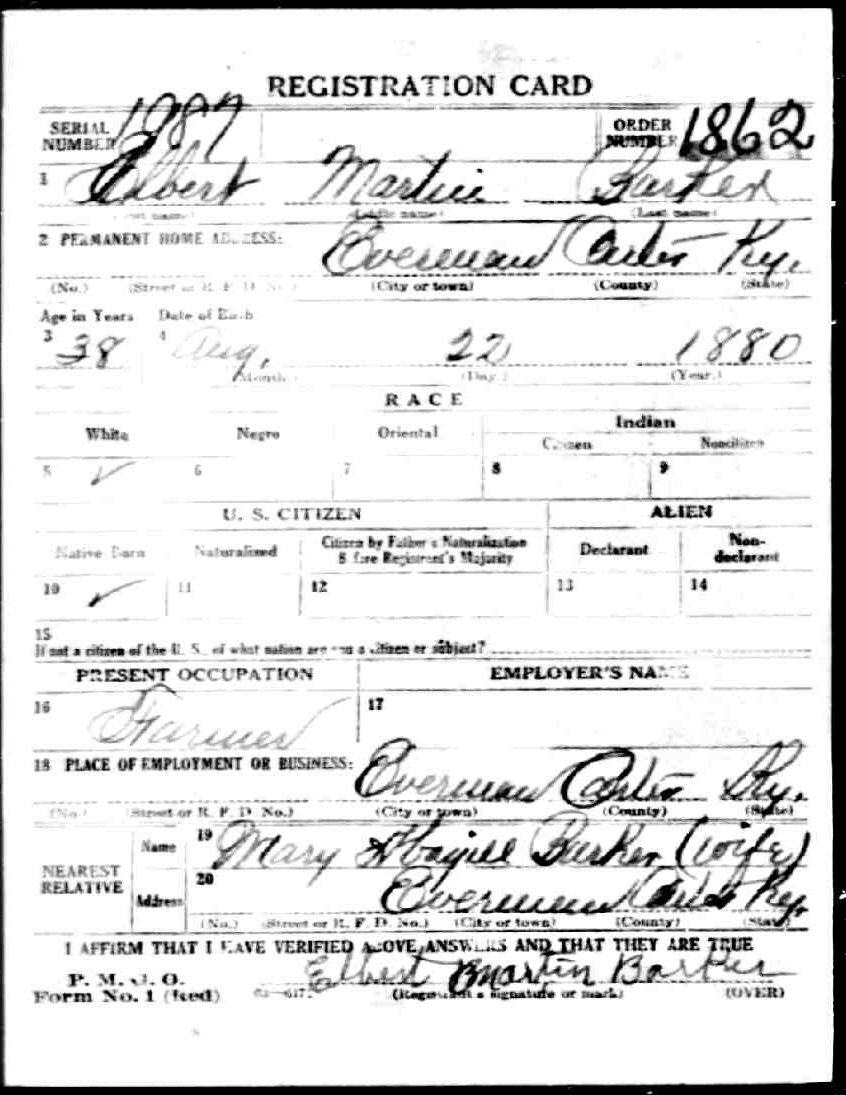 REGISTRATION CARD
SERIAL NUMBER 1987 ORDER NUMBER 1862
1 Elbert Martin Barker
(First name) (Middle name) (Last name)
2 PERMANENT HOME ADDRESS: Everman Carter Ky.
(No.) (Street or R. F. D. No.) (City or town) (County) (State)
Age in Years Date of Birth
3 38 4 Aug. 22 1880
(Month.) (Day.) (Year.)
RACE
White Negro Oriental Indian
Citizen Noncitizen
5 ✓ 6 7 8 9
U. S. CITIZEN ALIEN
Native Born Naturalized Citizen by Father's Naturalization Before Registrant's Majority Declarant Non-declarant
10 ✓ 11 12 13 14
15
If not a citizen of the U. S., of what nation are you a citizen or subject?
PRESENT OCCUPATION EMPLOYER'S NAME
16 Farmer 17
18 PLACE OF EMPLOYMENT OR BUSINESS: Everman Carter Ky.
(No.) (Street or R. F. D. No.) (City or town) (County) (State)
NEAREST RELATIVE Name 19 Mary Barker (wife)
Address 20 Everman Carter Ky.
(No.) (Street or R. F. D. No.) (City or town) (County) (State)
I AFFIRM THAT I HAVE VERIFIED ABOVE ANSWERS AND THAT THEY ARE TRUE
P. M. G. O.
Form No. 1 (Red) Elbert Martin Barker
(Registrant's signature or mark) (OVER)